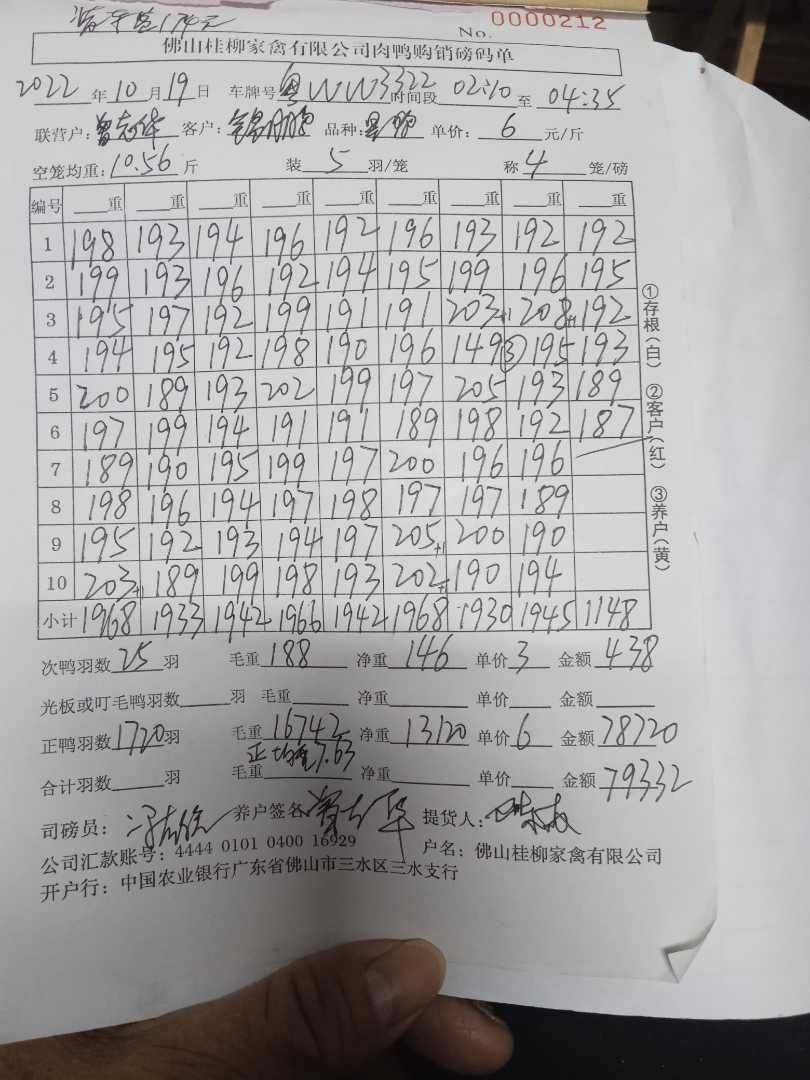 174元
No. 0000212
佛山桂柳家禽有限公司肉鸭购销磅码单
2022年10月19日 车牌号粤WW3322时间段02:10至04:35
联营户:曾志华 客户: 品种: 单价:6元/斤
空笼均重:10.56斤 装5羽/笼 称4笼/磅
编号 重 重 重 重 重 重 重 重 重
1 198 193 194 196 192 196 193 192 192
2 199 193 196 192 194 195 199 196 195
3 195 197 192 199 191 191 203+1 208+1 192
4 194 195 192 198 190 196 149③ 195 193
5 200 189 193 202 199 197 205 193 189
6 197 199 194 191 191 189 198 192 187
7 189 190 195 199 197 200 196 196
8 198 196 194 197 198 197 197 189
9 195 192 193 194 197 205+1 200 190
10 203+1 189 199 198 193 202+ 190 194
小计 1968 1933 1942 1966 1942 1968 1930 1945 1148
次鸭羽数25羽 毛重188 净重146 单价3 金额438
光板或叮毛鸭羽数 羽 毛重 净重 单价 金额
正鸭羽数1720羽 毛重16742 净重13120 单价6 金额78720
正均重7.63
合计羽数 羽 毛重 净重 单价 金额79332
司磅员: 养户签名 提货人:
公司汇款账号:4444 0101 0400 16929 户名:佛山桂柳家禽有限公司
开户行:中国农业银行广东省佛山市三水区三水支行
①存根(白) ②客户(红) ③养户(黄)